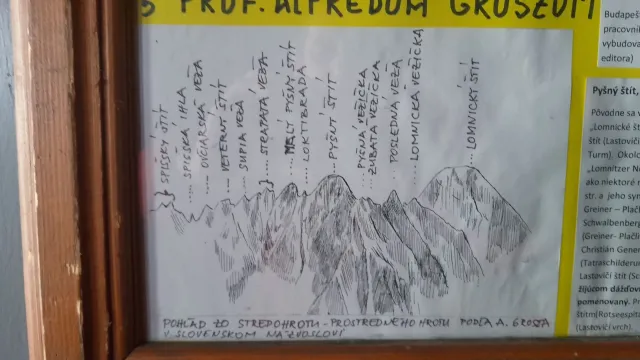 S PROF. ALFRÉDOM GROSZOM
SPIŠSKÝ ŠTÍT
SPIŠSKÁ IHLA
OVČIARSKA VEŽA
VETERNÝ ŠTÍT
SUPIA VEŽA
STRAPATÁ VEŽA
MALÝ PYŠNÝ ŠTÍT
LOKTIBRADA
PYŠNÝ ŠTÍT
PYŠNÁ VEŽIČKA
ZUBATÁ VEŽIČKA
POSLEDNÁ VEŽA
LOMNICKÁ VEŽIČKA
LOMNICKÝ ŠTÍT
POHĽAD ZO STREDOHROTU - PROSTREDNÉHO HROTU PODĽA A. GROSZA
V SLOVENSKOM NÁZVOSLOVÍ
Budapeš
pracovník
vybudova
editora)
Pyšný štít,
Pôvodne sa v
„Lomnické št
štít (Lastovičí
Turm). Okolo
„Lomnitzer N
ako niektoré r
str. a jeho syn
Greiner – Plačli
Schwalbenberg
(Greiner- Plačlí
Christián Gener
(Tatraschilderun
Lastovičí štít (Sc
žijúcom dážďov
pomenovaný. Pr
štítm(Rotseespitz
(Lastovičí vrch).